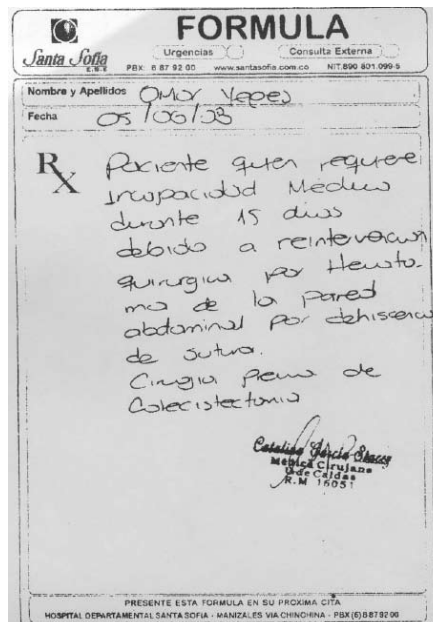 FORMULA
Santa Sofia
E.S.E
Urgencias
Consulta Externa
PBX: 8 87 92 00 www.santasofia.com.co NIT.890 801.099-5
Nombre y Apellidos Omar Yepes
Fecha 05/06/03
Rx
Paciente quien requiere
Incapacidad Medica
durante 15 dias
debido a reintervencion
quirurgica por Hemato-
ma de la pared
abdominal por dehiscencia
de sutura.
Cirugia previa de
Colecistectomia
Catalina Garcia
Médica Cirujana
U de Caldas
R.M 16051
PRESENTE ESTA FORMULA EN SU PROXIMA CITA
HOSPITAL DEPARTAMENTAL SANTA SOFIA - MANIZALES VIA CHINCHINA - PBX (6) 8 87 92 00